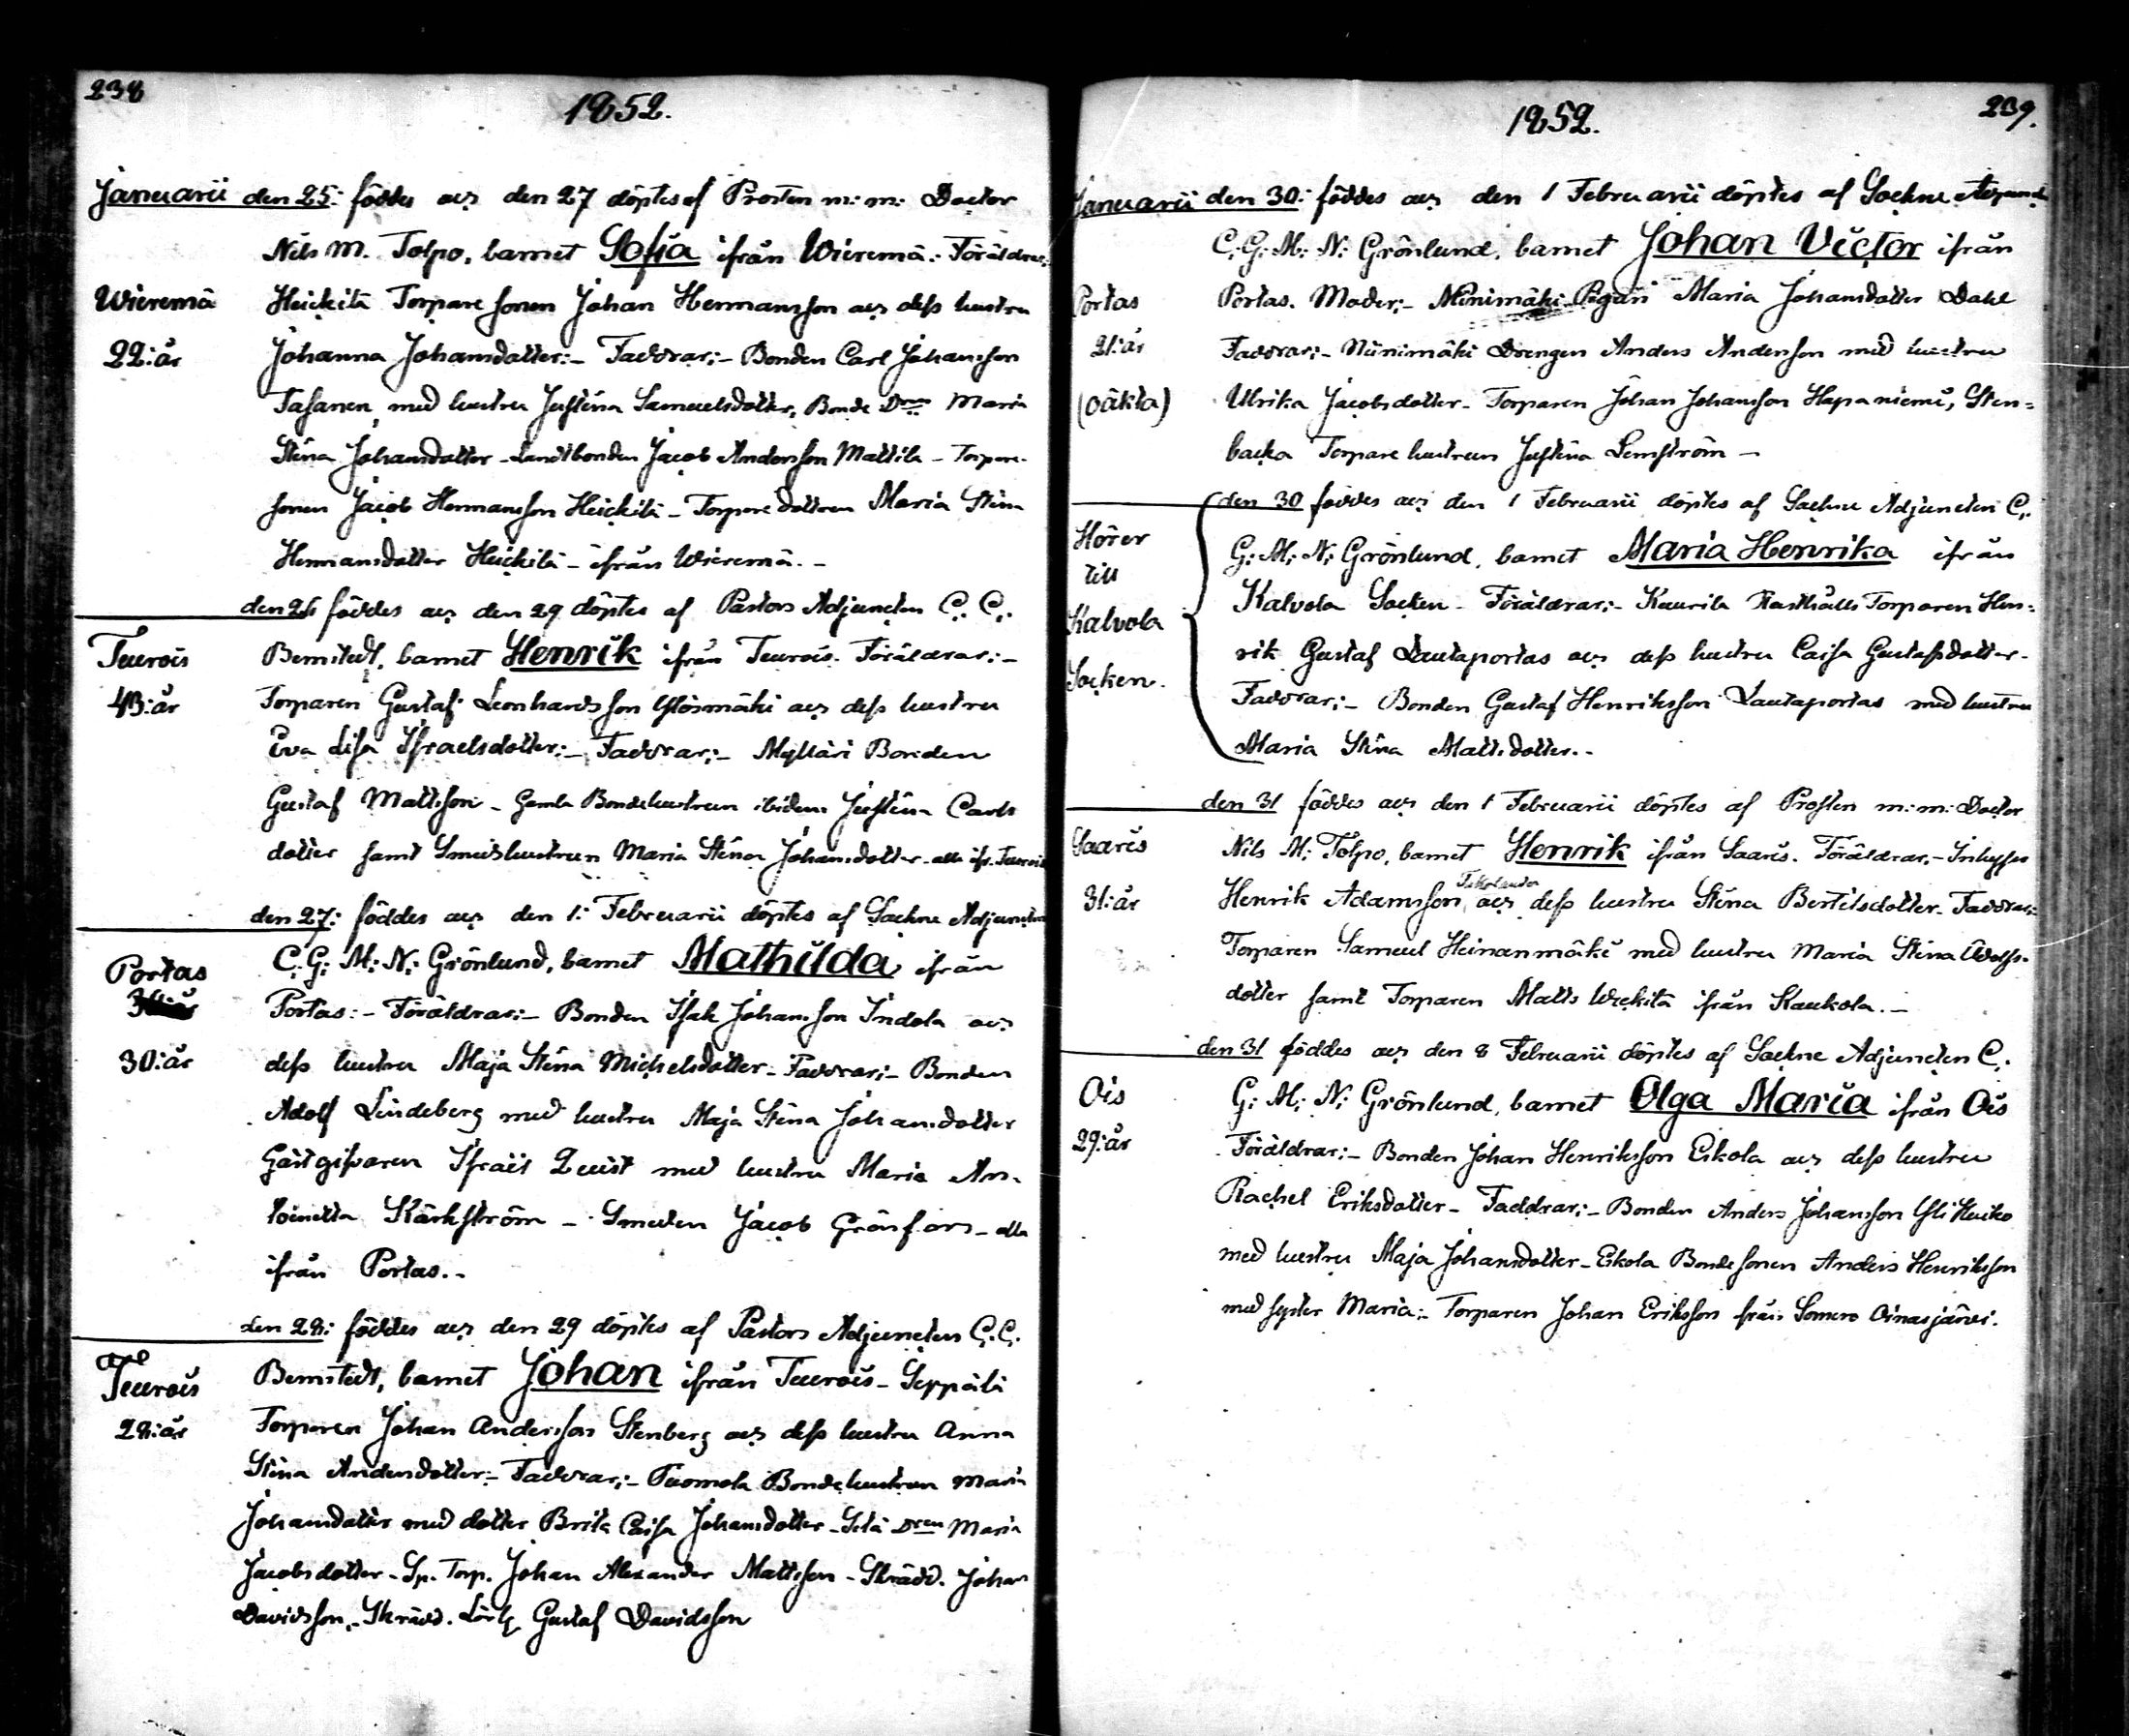 238
1852.
Januarii den 25: föddes och den 27 döptes af Prosten m: m: Doctor
Nils M. Tolpo, barnet Sofia ifrån Wieremä: Föräldrar:
Wieremä Heickilä Torpare sonen Johan Hermansson och dess hustru
22: år Johanna Johansdotter:- Faddrar;- Bonden Carl Johansson
med hustru Justina Samuelsdotter, Bonde Dren Maria
Stina Johansdotter - Landtbonden Jacob Andersson Mattila - Torpare-
sonen Jacob Hermansson Heickilä - Torpare dottren Maria Stina
Hermansdotter Heickilä - ifrån Wieremä. -
den 26 föddes och den 29 döptes af Pastors Adjuncten C. C.
Teurois Bernstedt, barnet Henrik ifrån Teurois. Föräldrar:-
43: år Torparen Gustaf Leonhardsson och dess hustru
Eva Lisa Israelsdotter:- Faddrar;- Myllari Bonden
Gustaf Mattsson - Gamla Bondehustrun ibidem Justina Carls
dotter samt Smedshustrun Maria Stina Johansdotter - alla ifr. Teurois
den 27: föddes och den 1: Februarii döptes af Sockne Adjuncten
Portas C. G: M: N: Grönlund, barnet Mathilda ifrån
Portas:- Föräldrar:- Bonden Isak Johansson Indola och
30: år dess hustru Maja Stina Michelsdotter - Faddrar;- Bonden
Adolf Lindeberg med hustru Maja Stina Johansdotter
Gästgifvaren Israel Quist med hustru Maria An-
toinetta Kärkström - Smeden Jacob Grönfors - alla
ifrån Portas. -
den 28: föddes och den 29 döptes af Pastors Adjuncten C. C.
Teurois Bernstedt, barnet Johan ifrån Teurois - Seppälä
28: år Torparen Johan Andersson Stenberg och dess hustru Anna
Stina Andersdotter:- Faddrar;- Tuomola Bondehustrun Maria
Johansdotter med dotter Brita Caisa Johansdotter - Dren Maria
Jacobsdotter - Sp. Torp. Johan Alexander Mattsson - Skrädd. Johan
Davidsson, - Skrädd. Lärl. Gustaf Davidsson
239.
1852.
Januarii den 30: föddes och den 1 Februarii döptes af Sockne
C. G: M: N: Grönlund, barnet Johan Victor ifrån
Portas Portas. Moder;- Niinimäki Pigan Maria Johansdotter Dahl
21: år Faddrar;- Niinimäki Drengen Anders Andersson med hustru
(oäkta) Ulrika Jacobsdotter - Torparen Johan Johansson Hapaniemi, Sten=
backa Torpare hustrun Justina Lemström -
den 30 föddes och den 1 Februarii döptes af Sockne Adjuncten C.
Hörer G: M: N: Grönlund, barnet Maria Henrika ifrån
till
Kalvola Kalvola Socken - Föräldrar;- Kaurila Rusthålls Torparen Hen=
rik Gustaf Lautaportas och dess hustru Caisa Gustafsdotter -
Socken. Faddrar;- Bonden Gustaf Henriksson Lautaportas med hustru
Maria Stina Mattsdotter. -
den 31 föddes och den 1 Februarii döptes af Prosten m: m: Doctor
Saaris Nils M: Tolpo, barnet Henrik ifrån Saaris. Föräldrar, - Inhyses
31: år Henrik Adamsson, och dess hustru Stina Bertilsdotter - Faddrar;-
Torparen Samuel Heinanmäki med hustru Maria Stina Adolfs-
dotter samt Torparen Matts ifrån Kaukola. -
den 31 föddes och den 8 Februarii döptes af Sockne Adjuncten C.
Ois G: M: N: Grönlund, barnet Olga Maria ifrån Ois
29: år Föräldrar;- Bonden Johan Henriksson Eskola och dess hustru
Rachel Eriksdotter - Faddrar;- Bonden Anders Johansson
med hustru Maja Johansdotter - Eskola Bondesonen Anders Henriksson
med syster Maria;- Torparen Johan Eriksson från Somero Oinasjärvi.